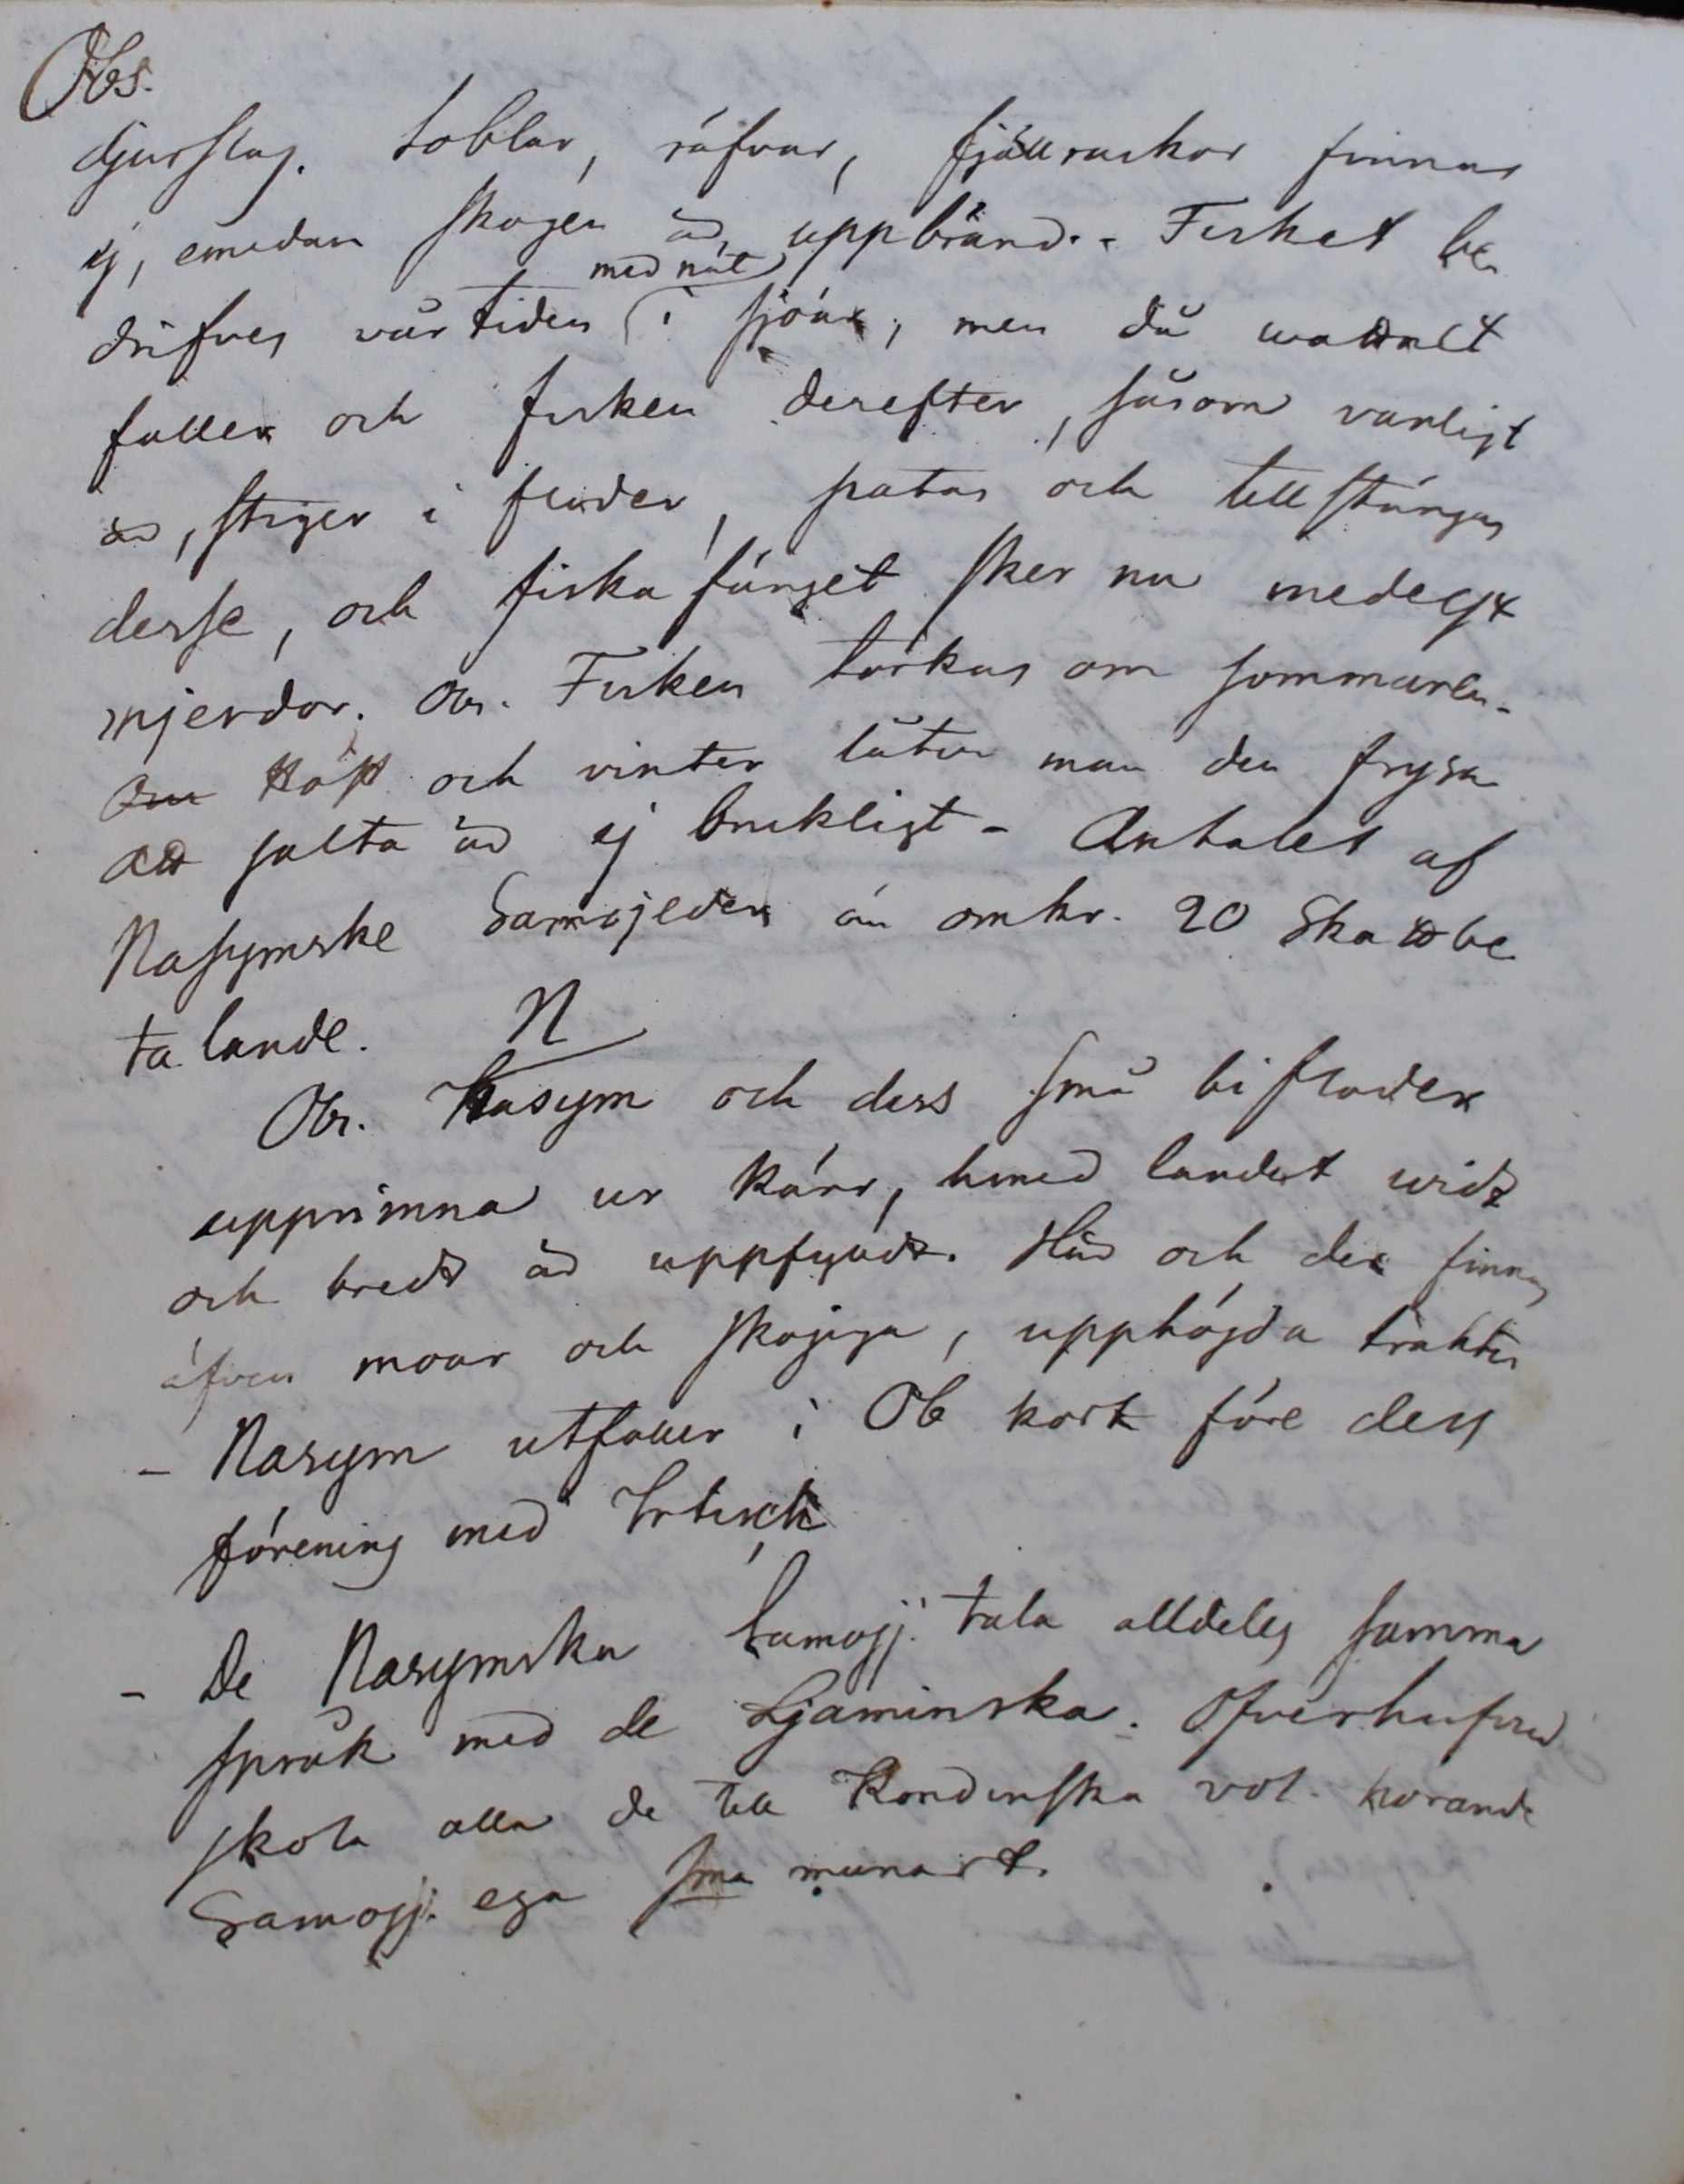 Obs.
djurslag. Soblar, räfvar, fjällrackor finnas
ej, emedan skogen är uppbränd. - Fisket be
med nät
drifves vårtiden i sjöar, men då wattnet
faller och fisken derefter, såsom vanligt
är, stiger i floder, patas och tillstänges
desse, och fiskafånget sker nu medelst
mjerdor. Obs. Fisken torkas om sommaren -
Om Höst och vinter låter man den frysa
Att salta är ej brukligt - Antalet af
Nasymske Samojeder är omkr. 20 Skattbe
talande.
N
Obs. Kasym och dess små bifloder
upprinna ur Kärr, hvmed landet widt
och bredt är uppfyldt. Här och der finnas
äfven moar och skogiga, upphöjda trakter
- Nasym utfaller i Ob kort före dess
förening med Irtisch
- De Nasymska Samojj. tala alldeles samma
språk med de Ljaminska. Öfverhufvud
skola alla de till Kondinska vol. hörande
Samojj. ega sma munart.